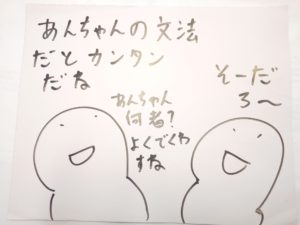 あんちゃんの文法
だとカンタン
だね
そーだ
ろ〜
あんちゃん
何者？
よくでくわ
すね